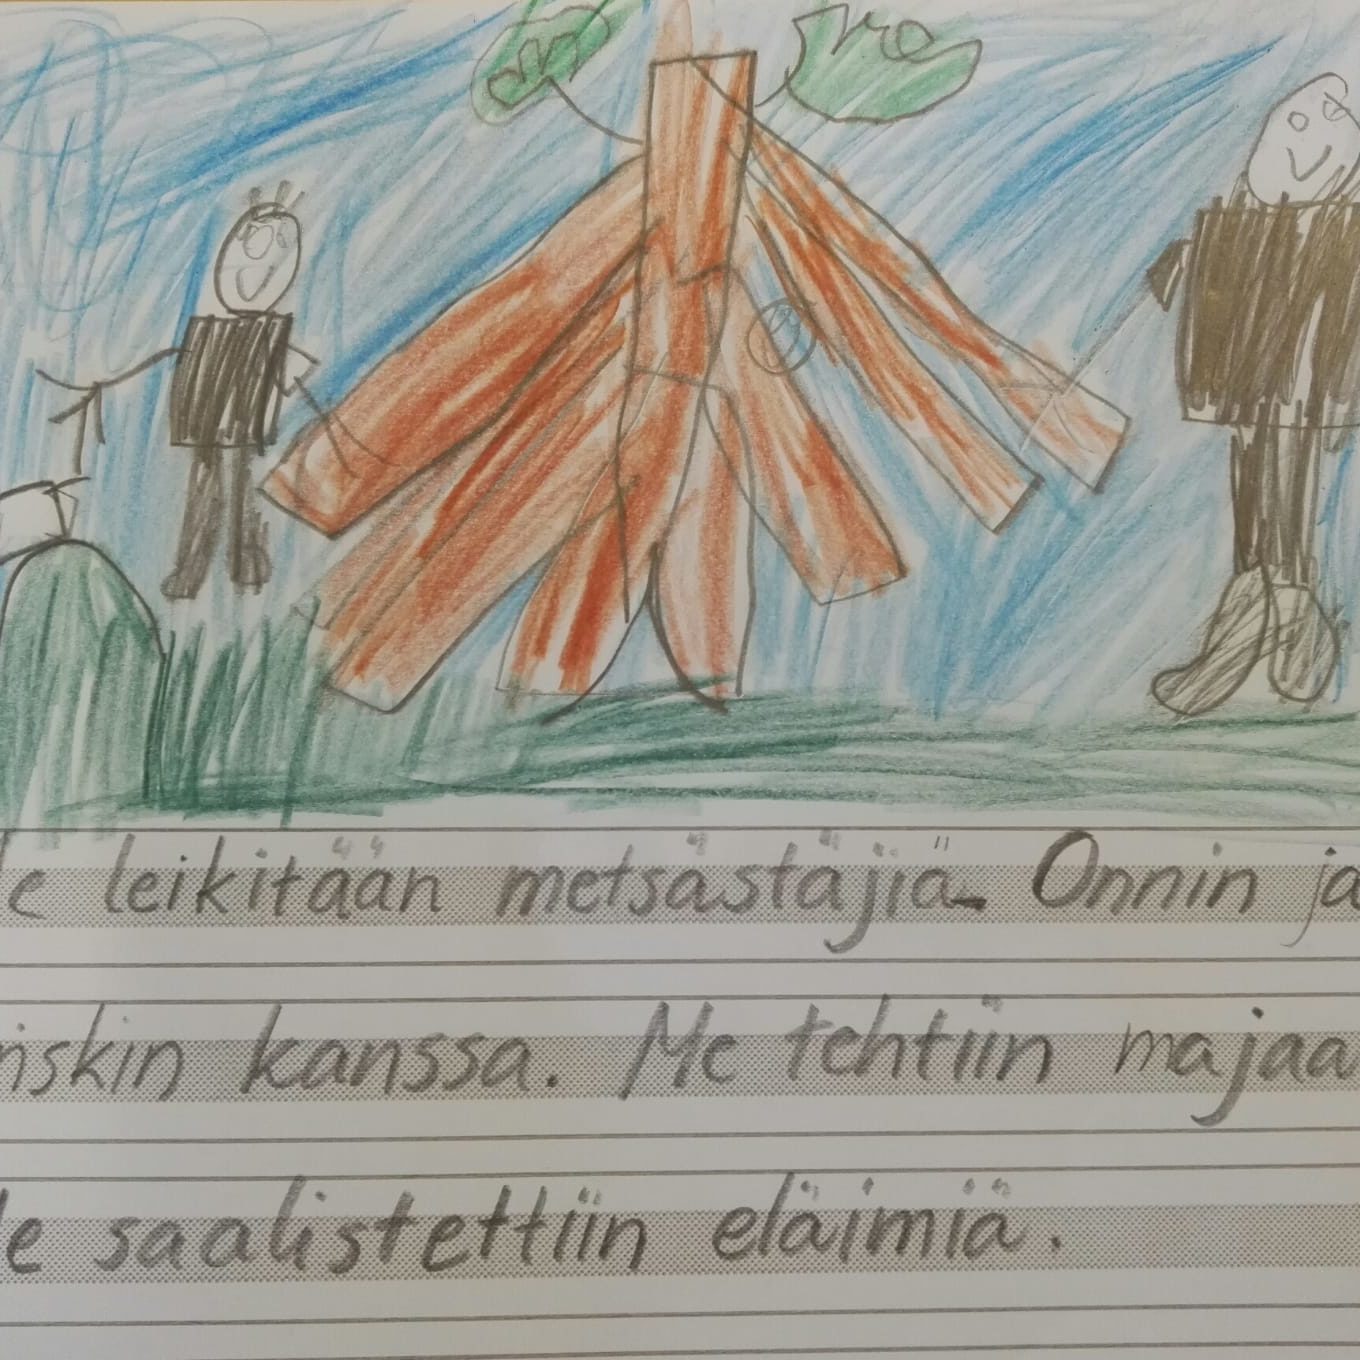 e leikitään metsästäjiä. Onnin ja
nskin kanssa. Me tehtiin majaa
e saalistettiin eläimiä.